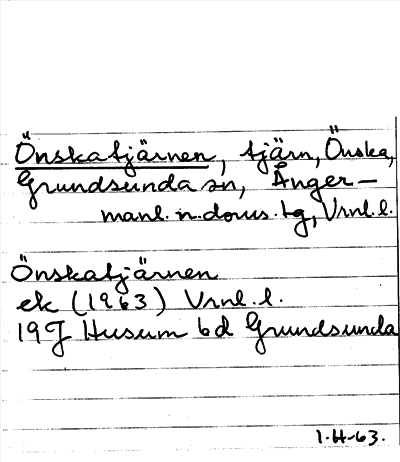 Önskatjärnen, tjärn, Önska,
Grundsunda sn, Ånger-
manl. n. doms. tg, Vrnl. l.
Önskatjärnen
ek (1963) Vrnl. l.
19J Husum bd Grundsunda
1-H-63.